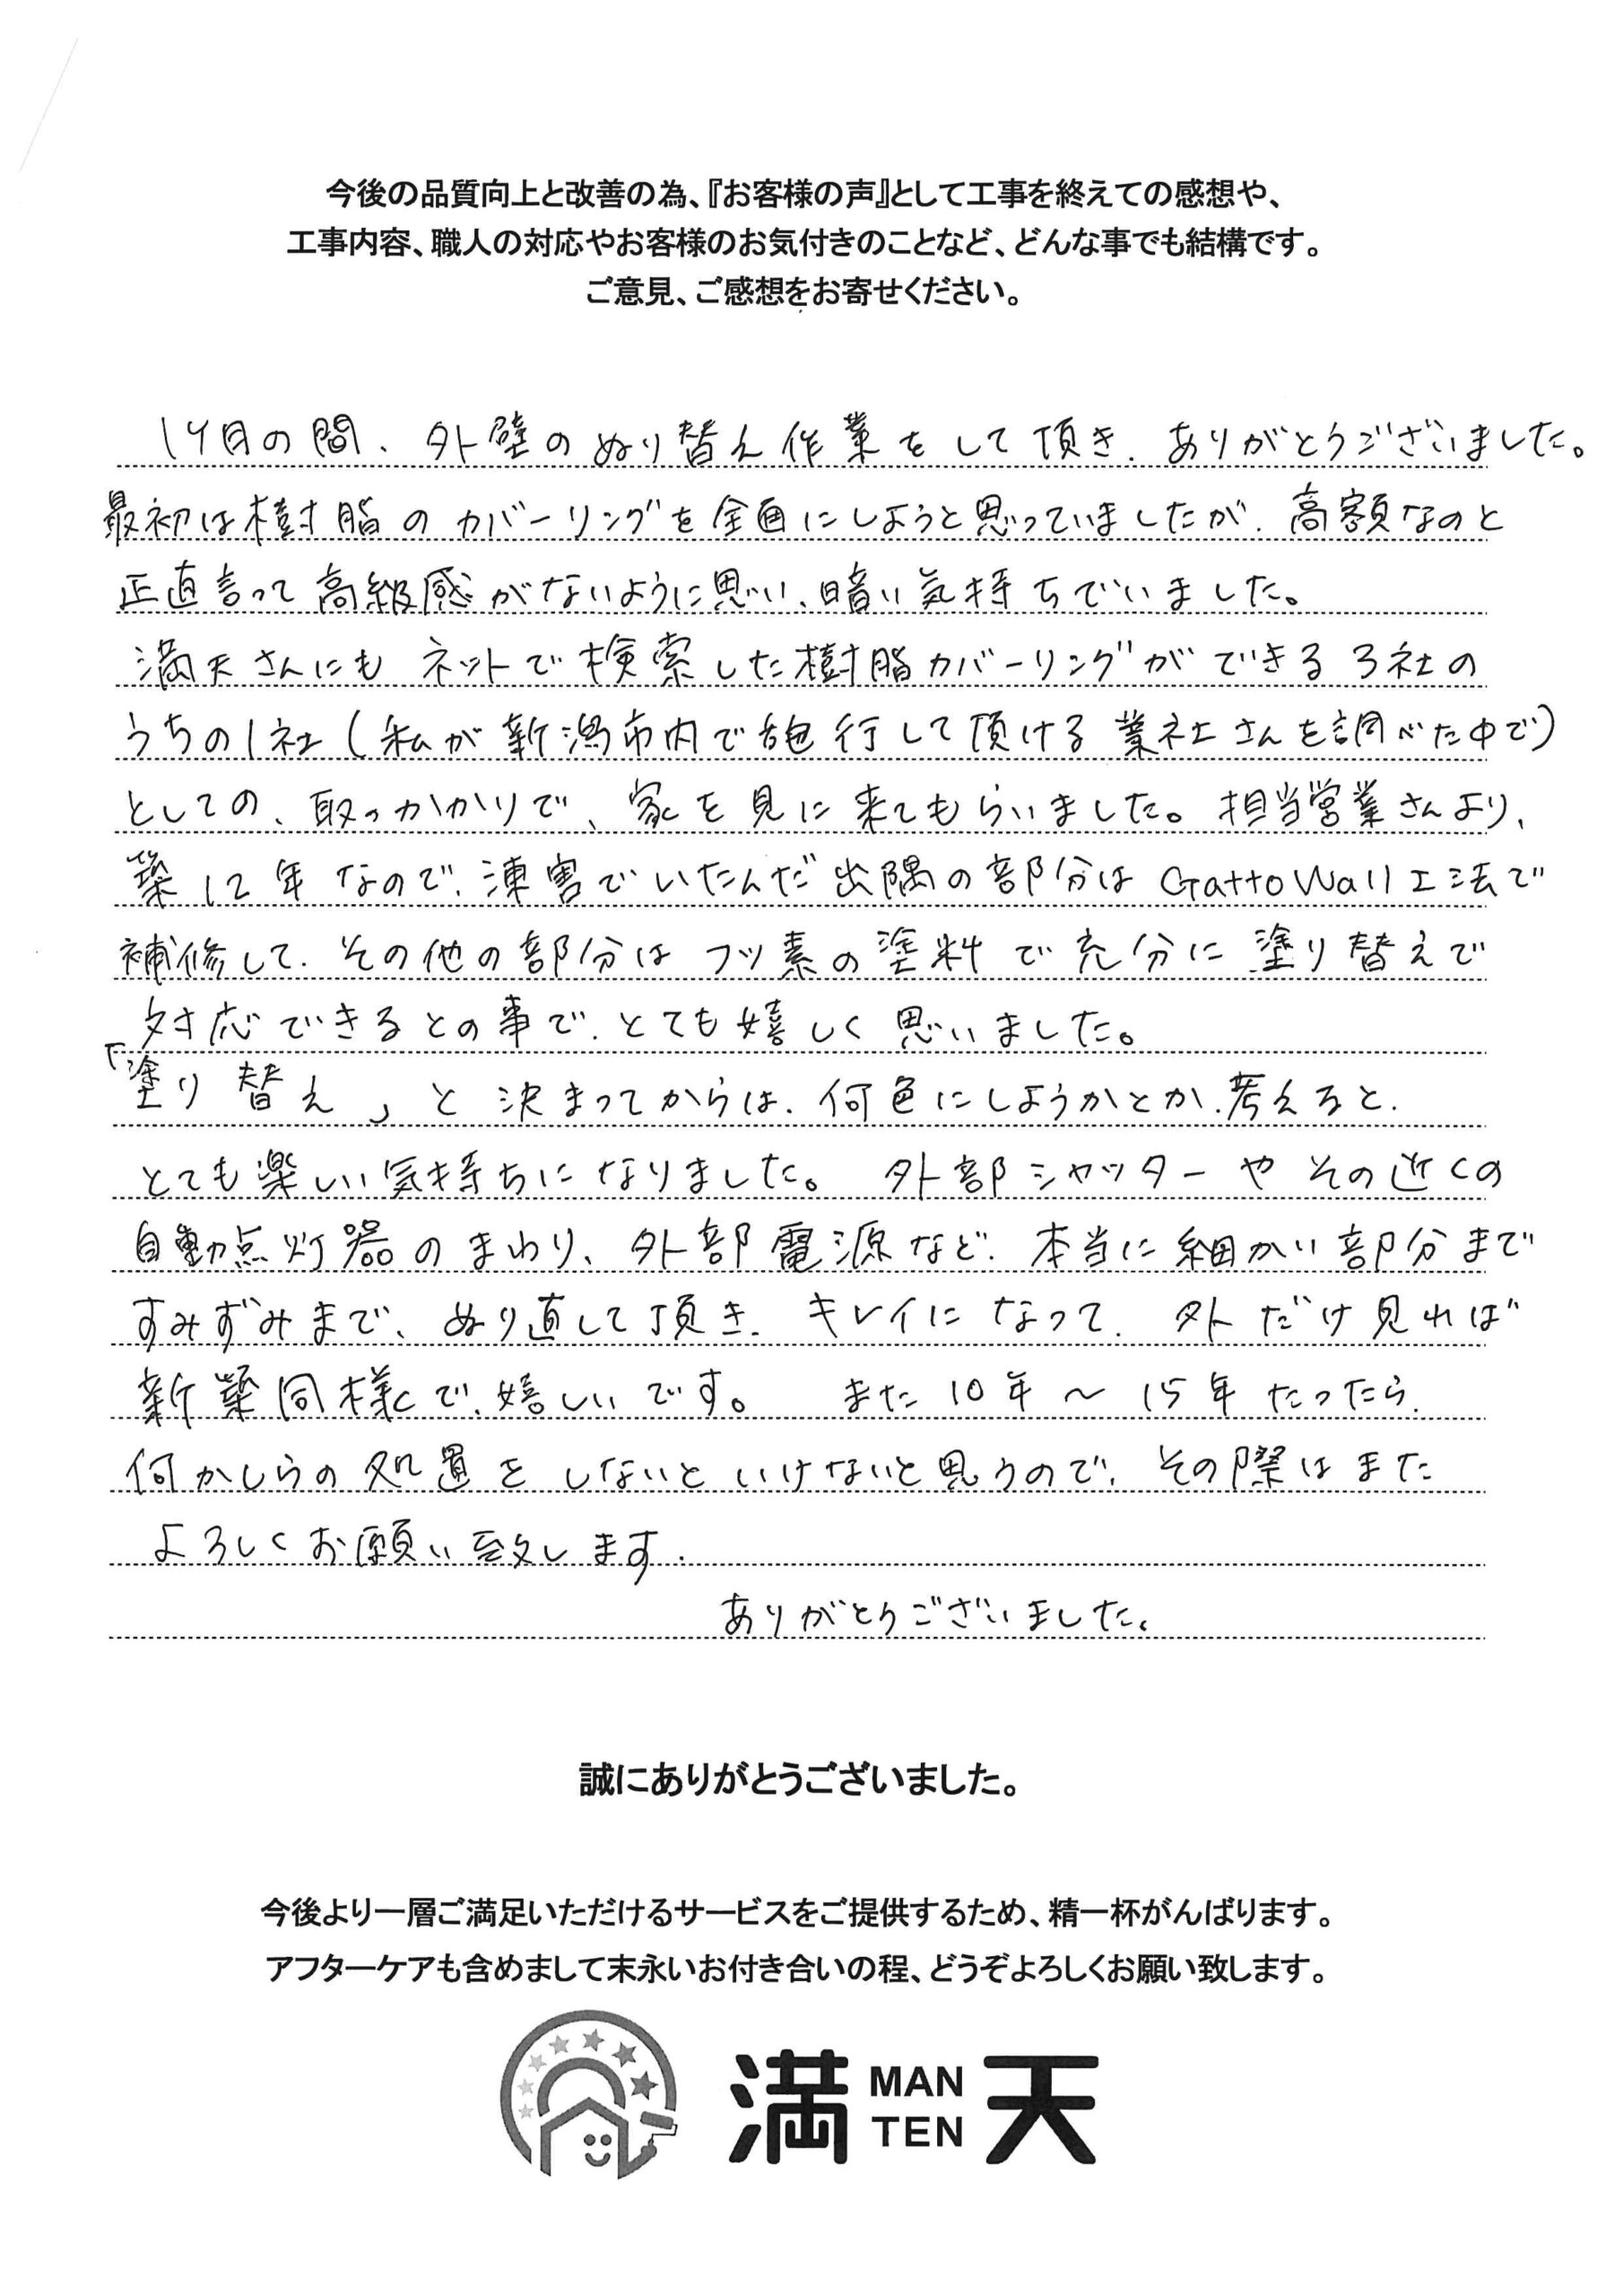 今後の品質向上と改善の為、『お客様の声』として工事を終えての感想や、
工事内容、職人の対応やお客様のお気付きのことなど、どんな事でも結構です。
ご意見、ご感想をお寄せください。
1ヶ月の間、外壁のぬり替え作業をして頂き、ありがとうございました。
最初は樹脂のカバーリングを全面にしようと思っていましたが、高額なのと
正直言って高級感がないように思い、暗い気持ちでいました。
満天さんにも ネットで検索した樹脂カバーリングができる 3社の
うちの1社(私が新潟市内で施行して頂ける業社さんを調べた中で)
としての、取っかかりで、家を見に来てもらいました。担当営業さんより、
築12年なので、凍害でいたんだ出隅の部分は GattoWall工法で
補修して、その他の部分はフッ素の塗料で充分に塗り替えで
対応できるとの事で、とても嬉しく思いました。
「塗り替え」と決まってからは、何色にしようかとか、考えると、
とても楽しい気持ちになりました。 外部シャッターや その近くの
自動点灯器のまわり、外部電源など、本当に細かい部分まで
すみずみまで、ぬり直して頂き、キレイになって、外だけ見れば
新築同様で、嬉しいです。 また10年～15年たったら、
何かしらの処置をしないといけないと思うので、その際はまた
よろしくお願い致します。
ありがとうございました。
誠にありがとうございました。
今後より一層ご満足いただけるサービスをご提供するため、精一杯がんばります。
アフターケアも含めまして末永いお付き合いの程、どうぞよろしくお願い致します。
満 MAN TEN 天